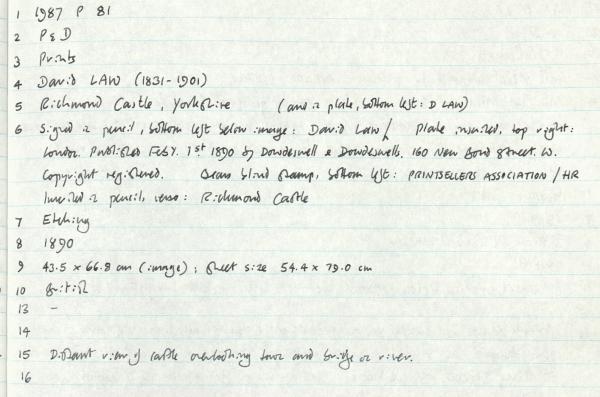 1 1987 P 81
2 P & D
3 Prints
4 David LAW (1831-1901)
5 Richmond Castle, Yorkshire (and in plate, bottom left: D LAW)
6 Signed in pencil, bottom left below image: David Law / Plate inscribed, top right:
London. Published Feby. 1st 1890 by Dowdeswell & Dowdeswells. 160 New Bond Street. W.
Copyright registered. Bears blind stamp, bottom left: PRINTSELLERS ASSOCIATION / HR
Inscribed in pencil, verso: Richmond Castle
7 Etching
8 1890
9 43.5 x 66.8 cm (image); sheet size 54.4 x 79.0 cm
10 British
13 -
14
15 Distant view of castle overlooking town and bridge over river.
16